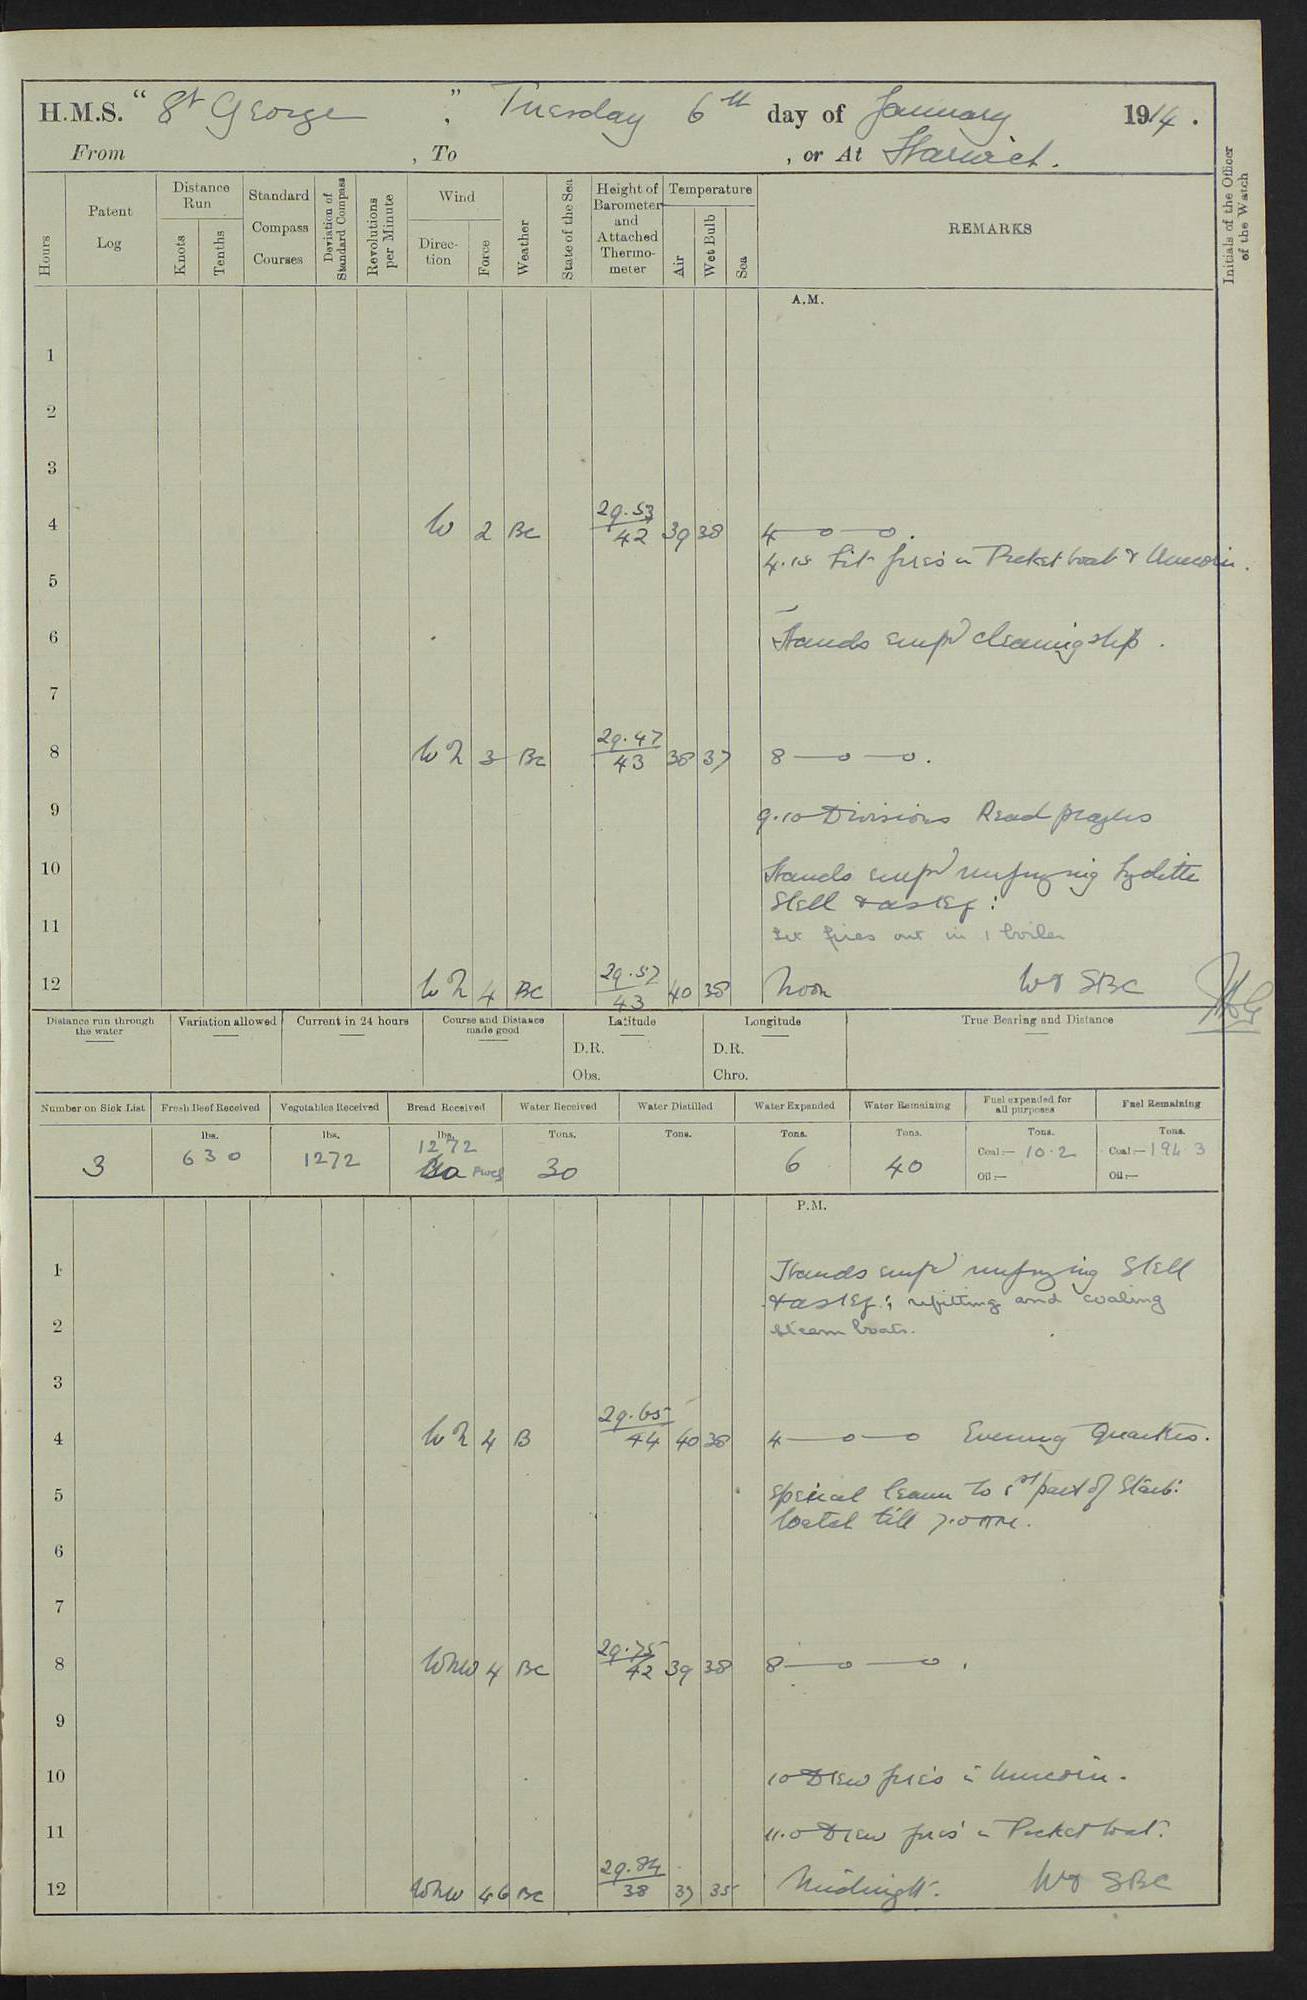 H.M.S. “ St George ” , Tuesday 6th day of January 1914 .
From , To , or At Harwich .
Hours
Patent Log
Distance Run
Knots
Tenths
Standard Compass Courses
Deviation of Standard Compass
Revolutions per Minute
Wind
Direc-tion
Force
Weather
State of the Sea
Height of Barometer and Attached Thermo-meter
Temperature
Air
Wet Bulb
Sea
REMARKS
Initials of the Officer of the Watch
A.M.
1
2
3
4 W 2 BC 29.53 / 42 39 38 4 — o — o .
4.15 Lit fires in Picket boat &
5
6 Hands emp'd cleaning ship .
7
8 W N 3 BC 29.47 / 43 38 37 8 — o — o .
9 9.10 Divisions Read prayers
10 Hands emp'd Lyddite
Shell &
11 Let fires out in 1 boiler
12 W N 4 BC 29.57 / 43 40 38 Noon W& SBC
Distance run through the water
Variation allowed
Current in 24 hours
Course and Distance made good
Latitude
D.R.
Obs.
Longitude
D.R.
Chro.
True Bearing and Distance
Number on Sick List
Fresh Beef Received
Vegetables Received
Bread Received
Water Received
Water Distilled
Water Expended
Water Remaining
Fuel expended for all purposes
Fuel Remaining
3
lbs. 630
lbs. 1272
lbs. 1272
Tons. 30
Tons.
Tons. 6
Tons. 40
Tons. Coal:— 10.2
Oil:—
Tons. Coal:— 1943
Oil:—
P.M.
1 Hands emp'd Shell
refitting and coaling
2 steam boats.
3
4 W N 4 B 29.65 / 44 40 38 4 — o — o Evening Quarters .
5 Special leave to 1st part of Starb:
Watch till 7.0 AM.
6
7
8 WNW 4 BC 29.75 / 42 39 38 8 — o — o .
9
10 10 Drew fires in
11 11.0 Drew fires in Picket boat.
12 WNW 4 6 BC 29.84 / 38 37 35 Midnight. W& SBC